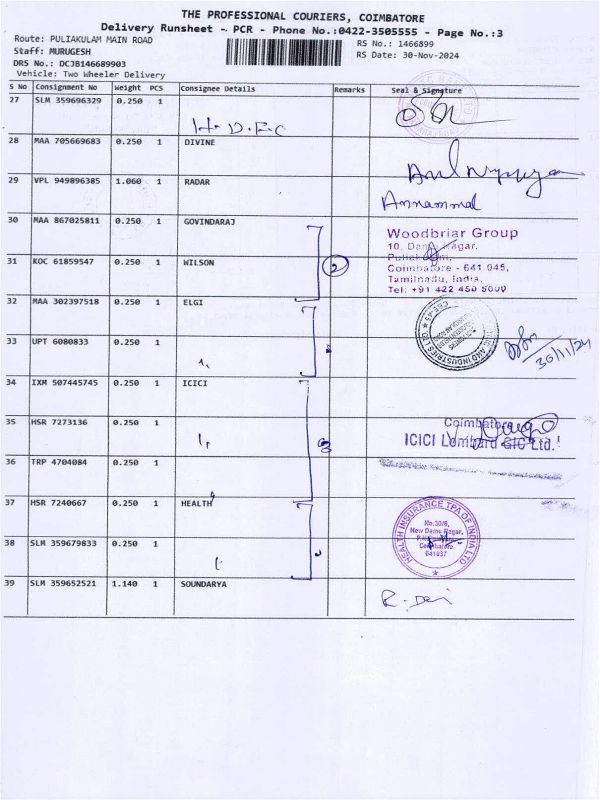 THE PROFESSIONAL COURIERS, COIMBATORE
Delivery Runsheet - PCR - Phone No.:0422-3505555 - Page No.:3
Route: PULIAKULAM MAIN ROAD
RS No.: 1466899
Staff: MURUGESH
RS Date: 30-Nov-2024
DRS No.: DCJB146689903
Vehicle: Two Wheeler Delivery
S No Consignment No Weight PCS Consignee Details Remarks Seal & Signature
27 SLM 359696329 0.250 1
H.D.F.C
28 MAA 705669683 0.250 1 DIVINE
29 VPL 949896385 1.060 1 RADAR
Annammal
30 MAA 867025811 0.250 1 GOVINDARAJ
Woodbriar Group
10, Damu Nagar,
Puliakulam,
31 KOC 61859547 0.250 1 WILSON 2
Coimbatore - 641 045,
Tamilnadu, India.
Tel: +91 422 450 5000
32 MAA 302397518 0.250 1 ELGI
33 UPT 6080833 0.250 1
30/11/24
34 IXM 507445745 0.250 1 ICICI
35 HSR 7273136 0.250 1
Coimbatore
ICICI Lombard GIC Ltd.
36 TRP 4704084 0.250 1
37 HSR 7240667 0.250 1 HEALTH
HEALTH INSURANCE TPA OF INDIA LTD
No.30/6,
New Damu Nagar,
Coimbatore
641037
38 SLM 359679833 0.250 1
39 SLM 359652521 1.140 1 SOUNDARYA